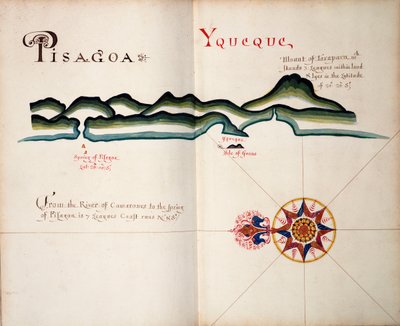 PISAGOA
YQUEQUE
Mount of Tarapaca, wch
stands 5 Leagues within land
& lyes in the Latitude
of 20° 20' S.
A
Spring of Pisagoa
Yqueque
Isle of Guano
From the River of Camarones to the Spring
of Pisagoa is 7 Leagues Coast runs N. & S.